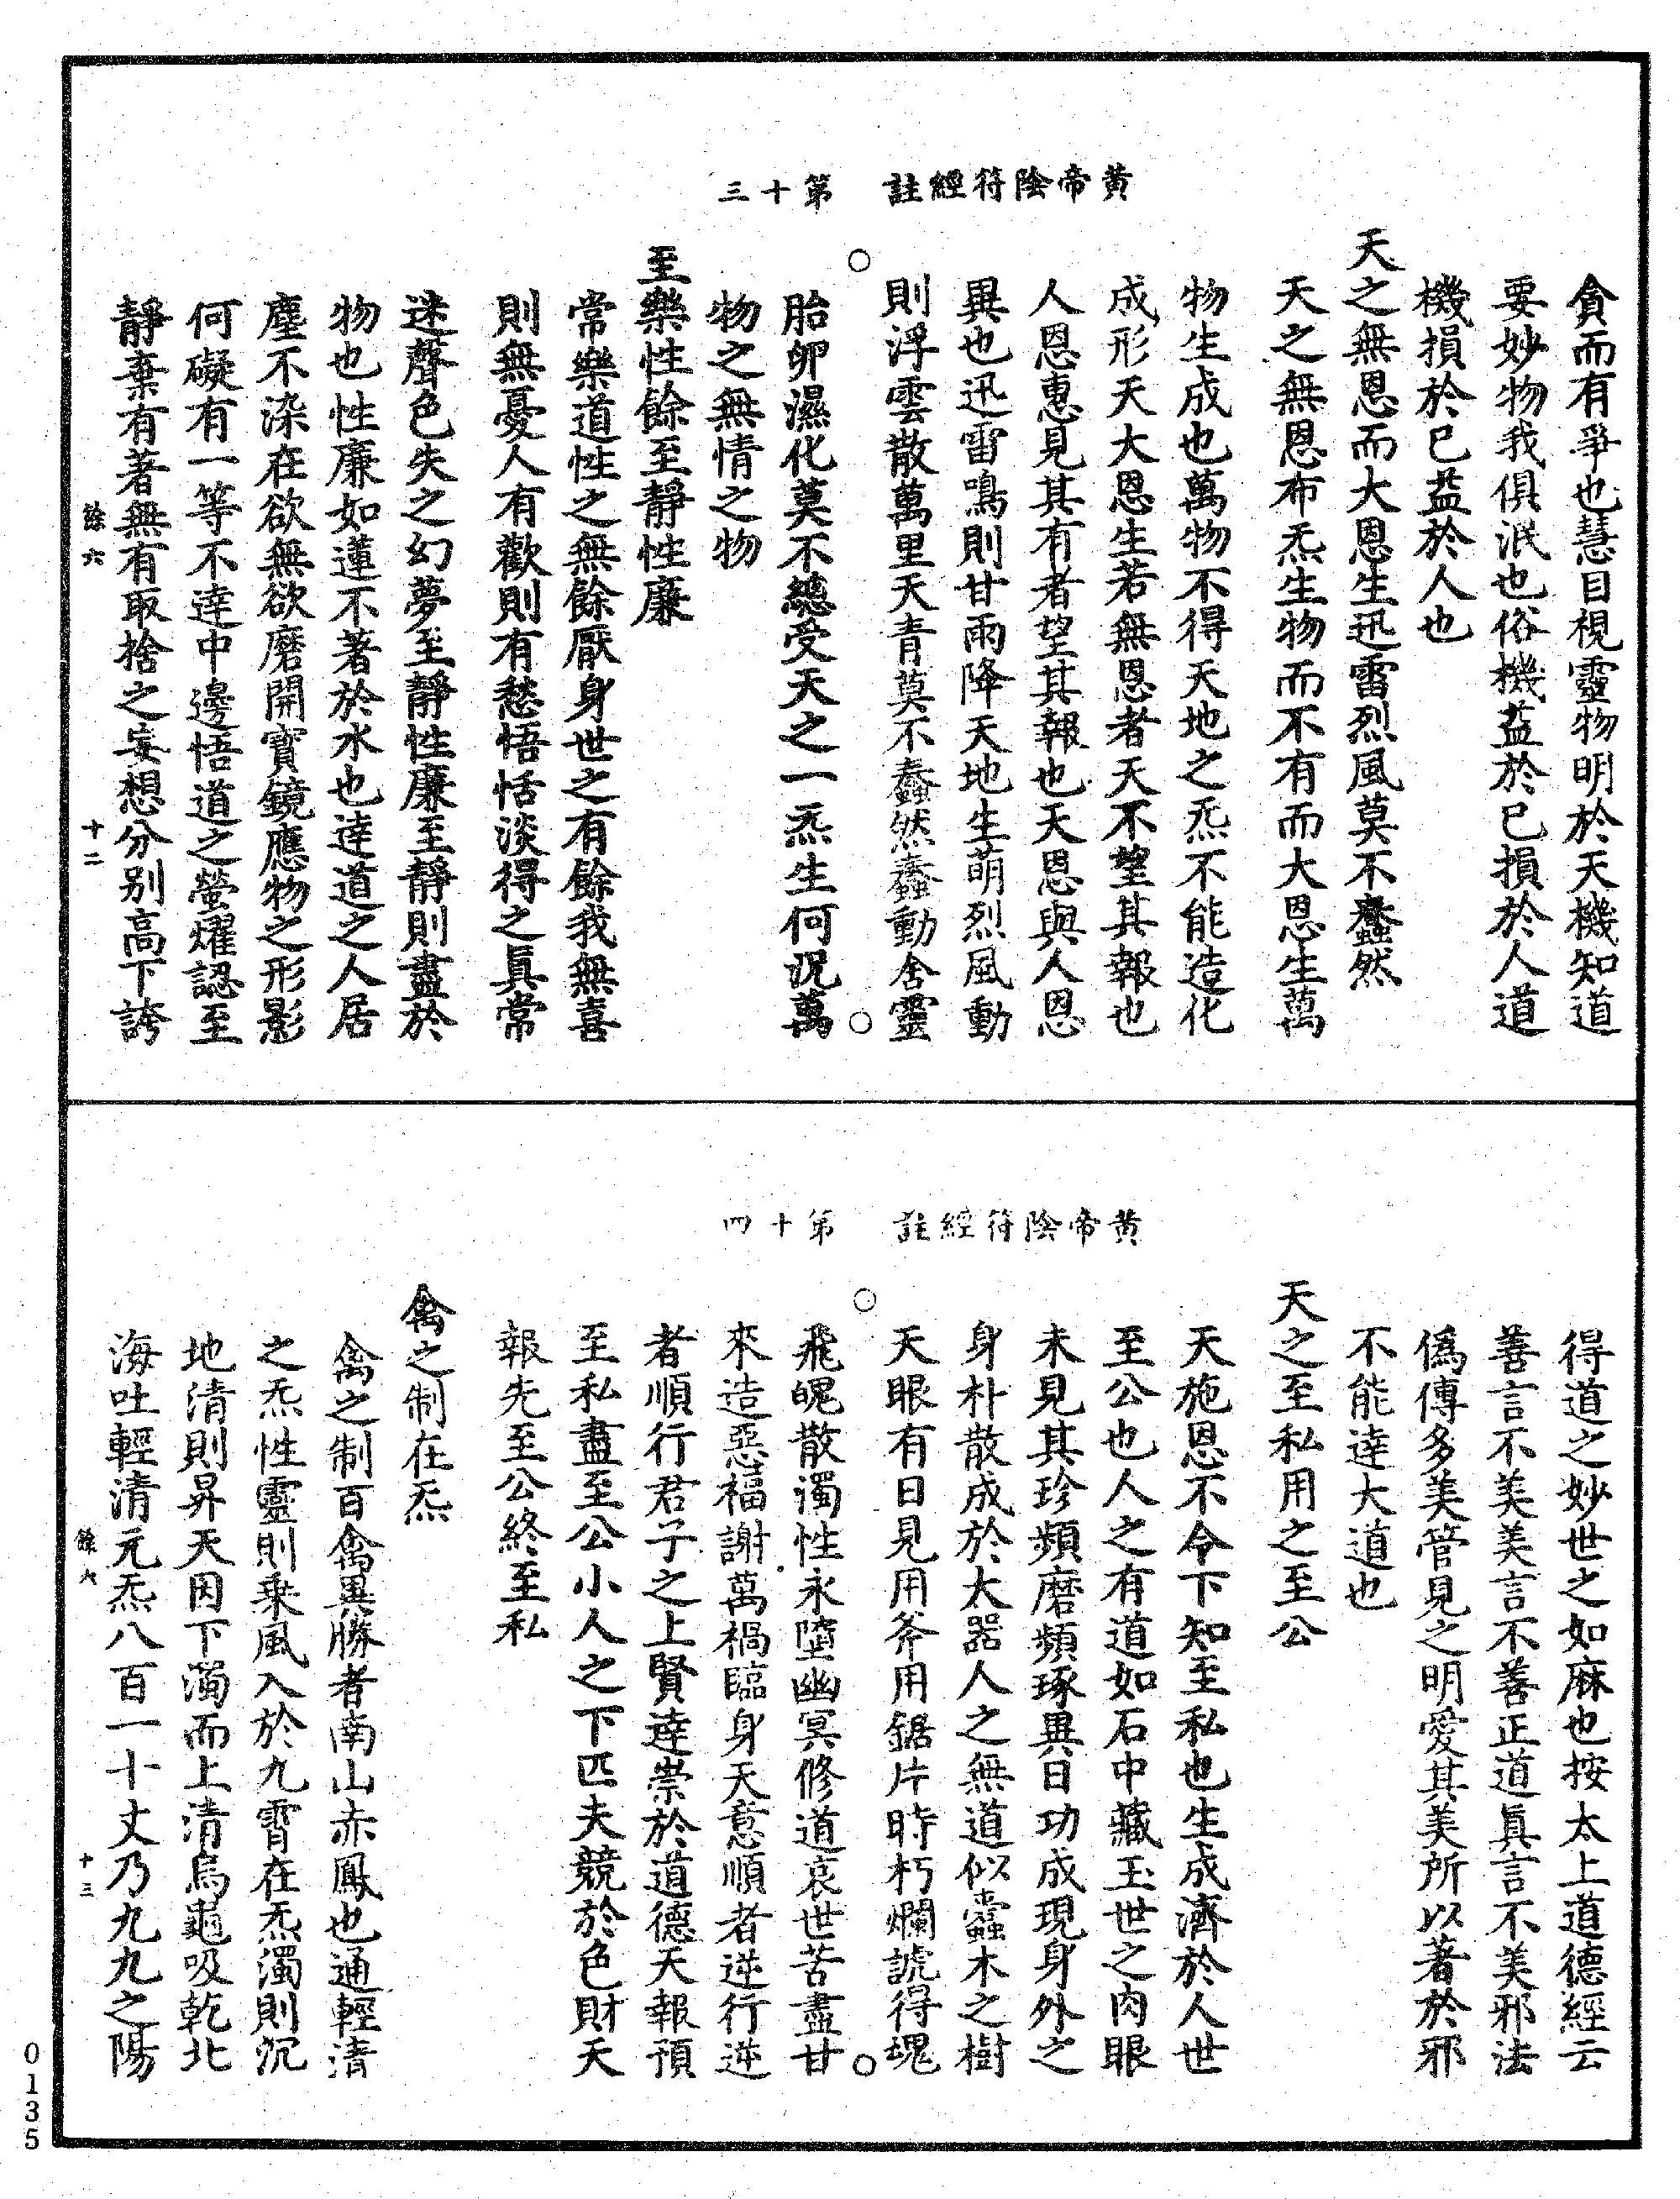 黃帝陰符經註　第十三
貪而有爭也慧目視靈物明於天機知道
要妙物我俱泯也俗機益於已損於人道
機損於已益於人也
天之無恩而大恩生迅雷烈風莫不蠢然
天之無恩布炁生物而不有而大恩生萬
物生成也萬物不得天地之炁不能造化
成形天大恩生若無恩者天不望其報也
人恩惠見其有者望其報也天恩與人恩
異也迅雷鳴則甘雨降天地生萌烈風動
則浮雲散萬里天青莫不蠢然蠢動含靈
胎卵濕化莫不總受天之一炁生何況萬
物之無情之物
至樂性餘至靜性廉
常樂道性之無餘厭身世之有餘我無喜
則無憂人有歡則有愁悟恬淡得之眞常
迷聲色失之幻夢至靜性廉至靜則盡於
物也性廉如蓮不著於水也達道之人居
塵不染在欲無欲磨開寳鏡應物之形影
何礙有一等不達中邊悟道之螢燿認至
靜棄有著無有取捨之妄想分別高下誇
餘六　十二
黃帝陰符經註　第十四
得道之妙世之如麻也按太上道德經云
善言不美美言不善正道眞言不美邪法
僞傳多美管見之明愛其美所以著於邪
不能達大道也
天之至私用之至公
天施恩不令下知至私也生成濟於人世
至公也人之有道如石中藏玉世之肉眼
未見其珍頻磨頻琢異日功成現身外之
身朴散成於太器人之無道似蠹木之樹
天眼有日見用斧用鋸片時朽爛諕得塊
飛魄散濁性永墮幽冥修道哀世苦盡甘
來造惡福謝萬禍臨身天意順者逆行逆
者順行君子之上賢達崇於道德天報預
至私盡至公小人之下匹夫競於色財天
報先至公終至私
禽之制在炁
禽之制百禽異勝者南山赤鳳也通輕清
之炁性靈則乗風入於九霄在炁濁則沉
地清則昇天因下濁而上清烏龜吸乾北
海吐輕清元炁八百一十丈乃九九之陽
餘六　十三
0135